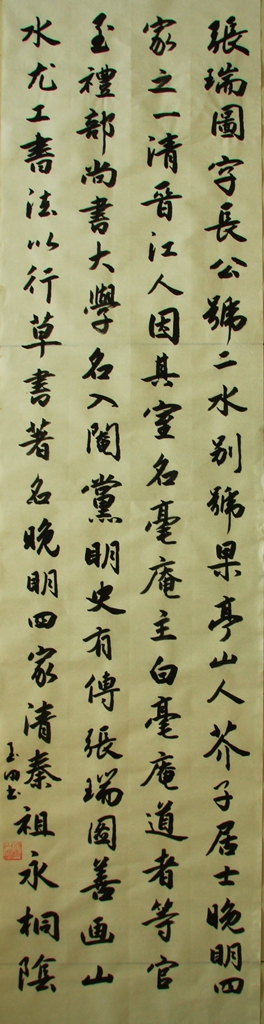 張瑞圖字長公號二水別號果亭山人芥子居士晚明四
家之一清晉江人因其室名毫庵主白毫庵道者等官
至禮部尚書大學名入閹黨明史有傳張瑞图善画山
水尤工書法以行草書著名晚明四家清秦祖永桐陰